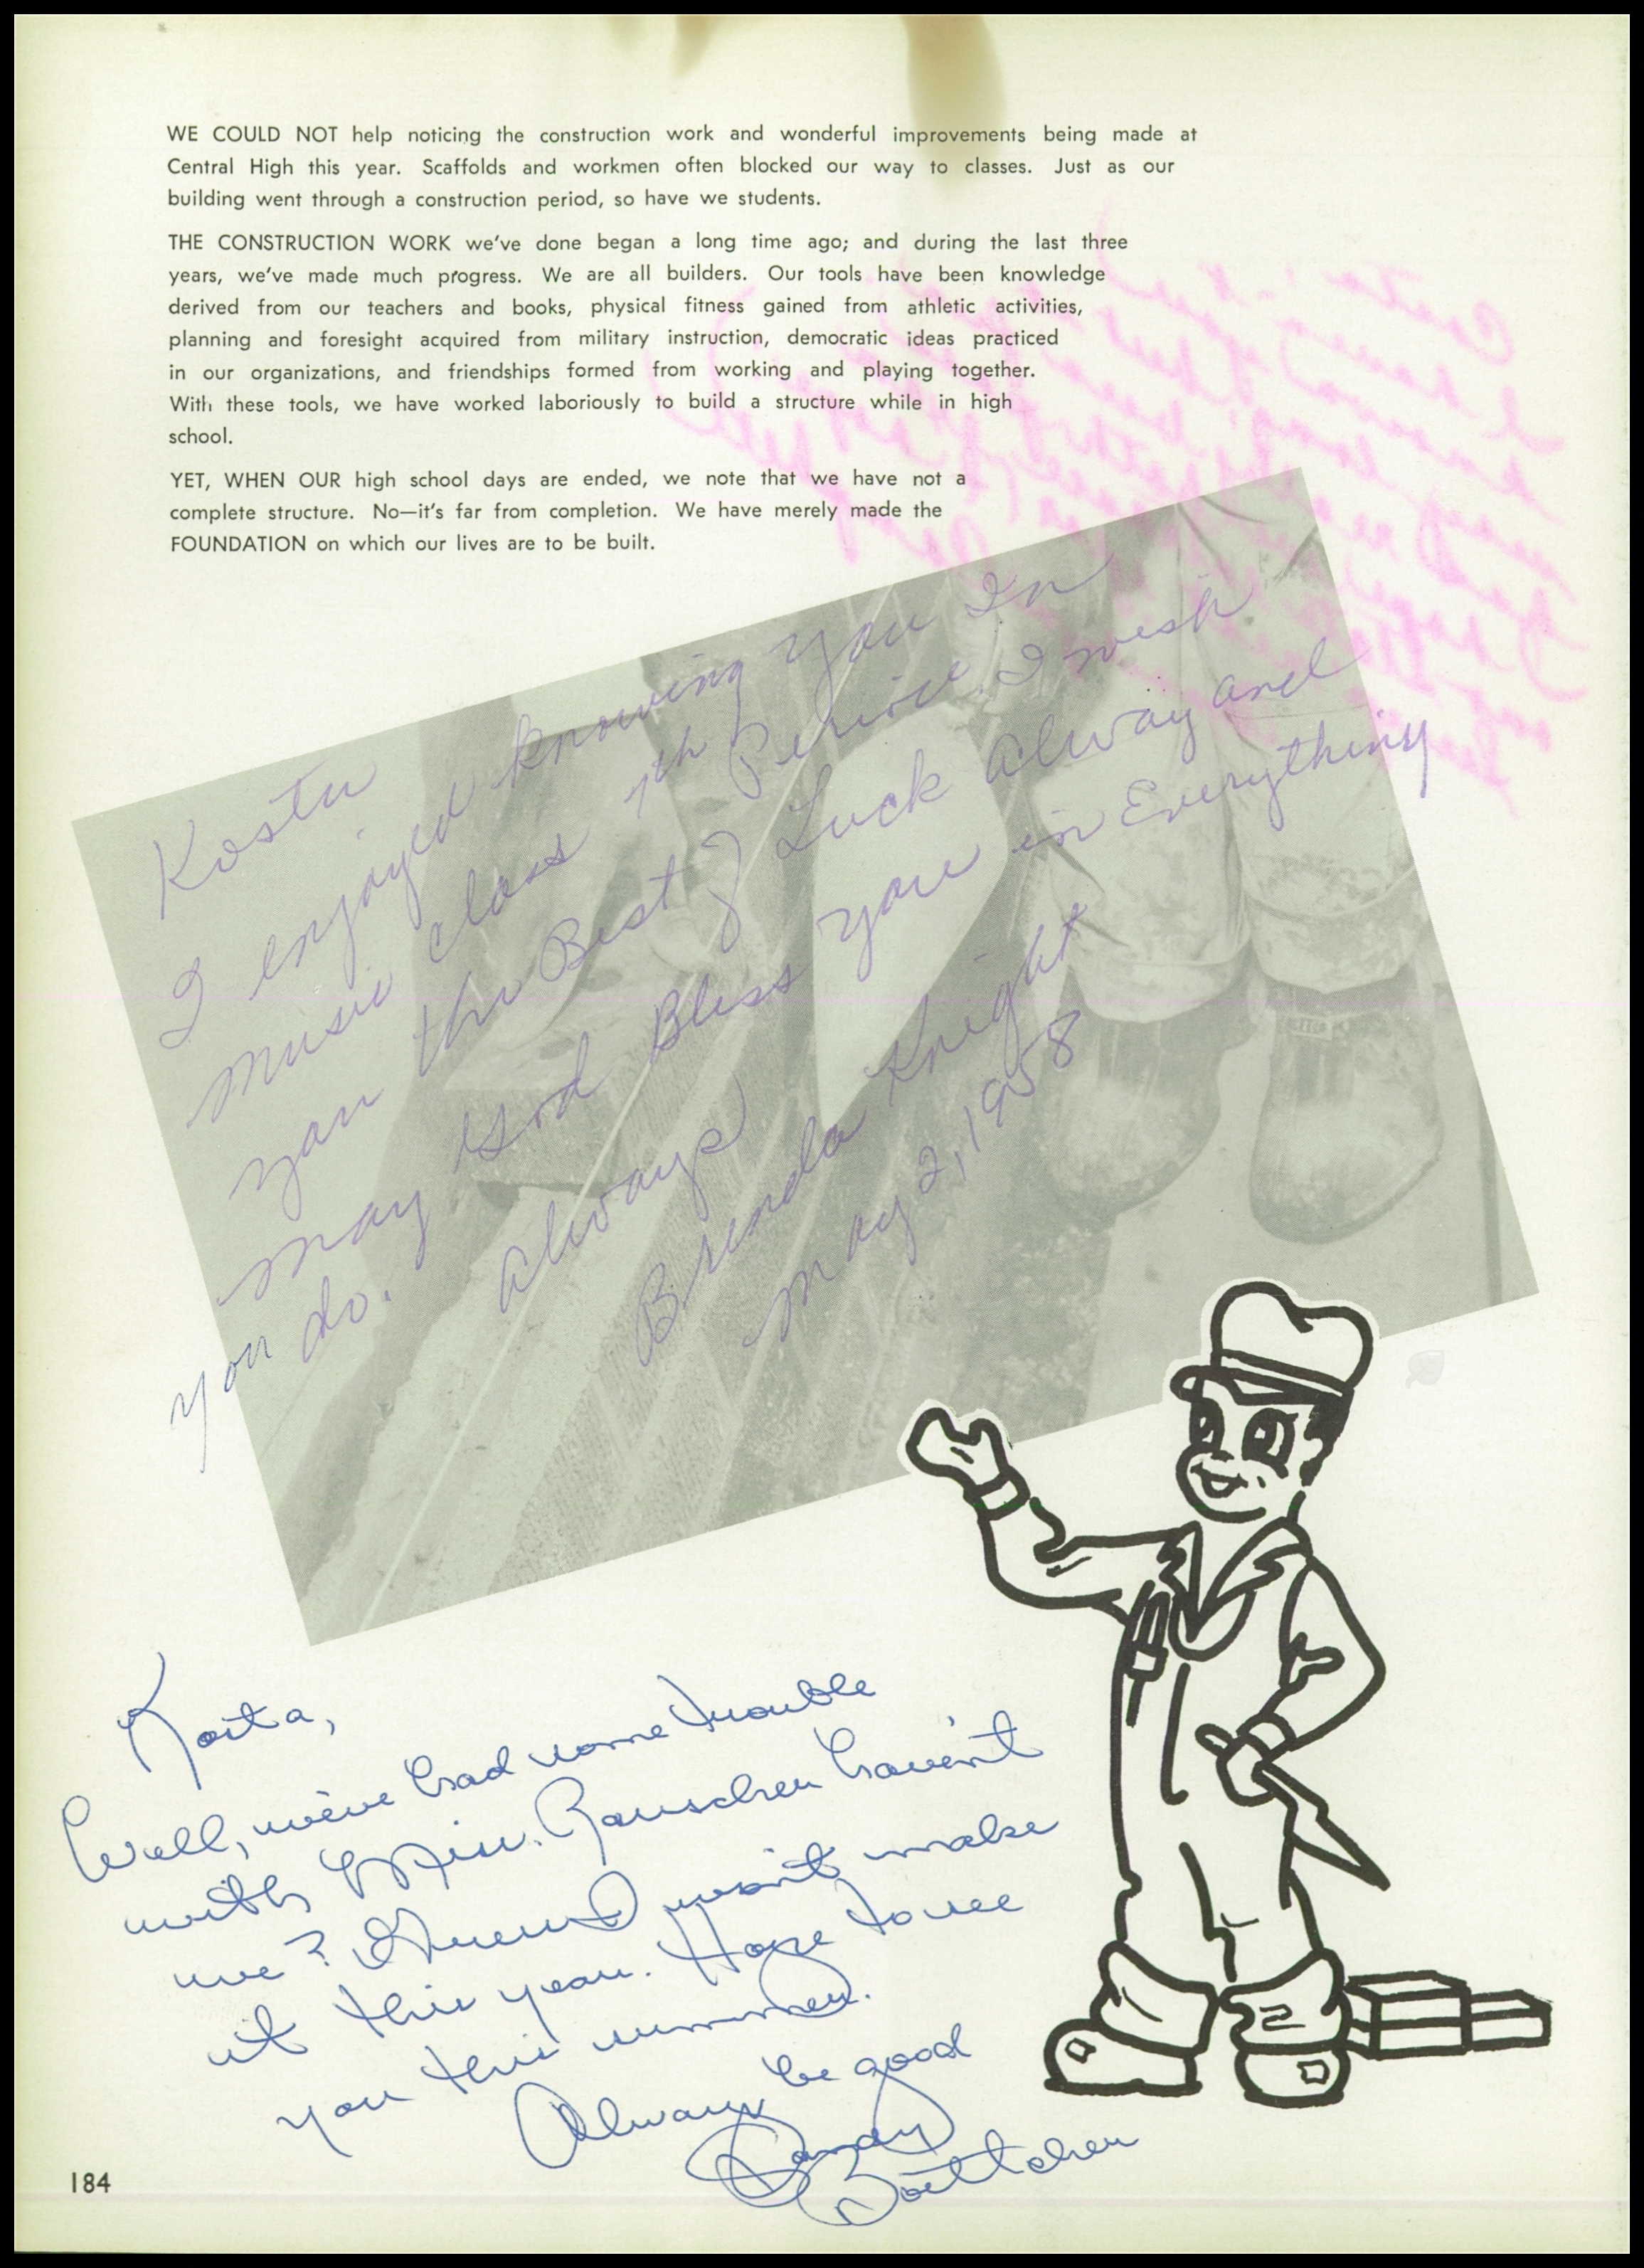 WE COULD NOT help noticing the construction work and wonderful improvements being made at
Central High this year. Scaffolds and workmen often blocked our way to classes. Just as our
building went through a construction period, so have we students.
THE CONSTRUCTION WORK we've done began a long time ago; and during the last three
years, we've made much progress. We are all builders. Our tools have been knowledge
derived from our teachers and books, physical fitness gained from athletic activities,
planning and foresight acquired from military instruction, democratic ideas practiced
in our organizations, and friendships formed from working and playing together.
With these tools, we have worked laboriously to build a structure while in high
school.
YET, WHEN OUR high school days are ended, we note that we have not a
complete structure. No—it's far from completion. We have merely made the
FOUNDATION on which our lives are to be built.
Kosta
I enjoyed knowing you In
music class 7th Period. I wish
you the Best of Luck alway and
may God Bless you in Everything
you do.
always
Brenda Knight
May 2, 1958
Kosta,
Well, we've had some trouble
with Miss. Rauscher haven't
we? I guess I won't make
it this year. Hope to see
you this summer.
Always be good
Sandy
Boettcher
184